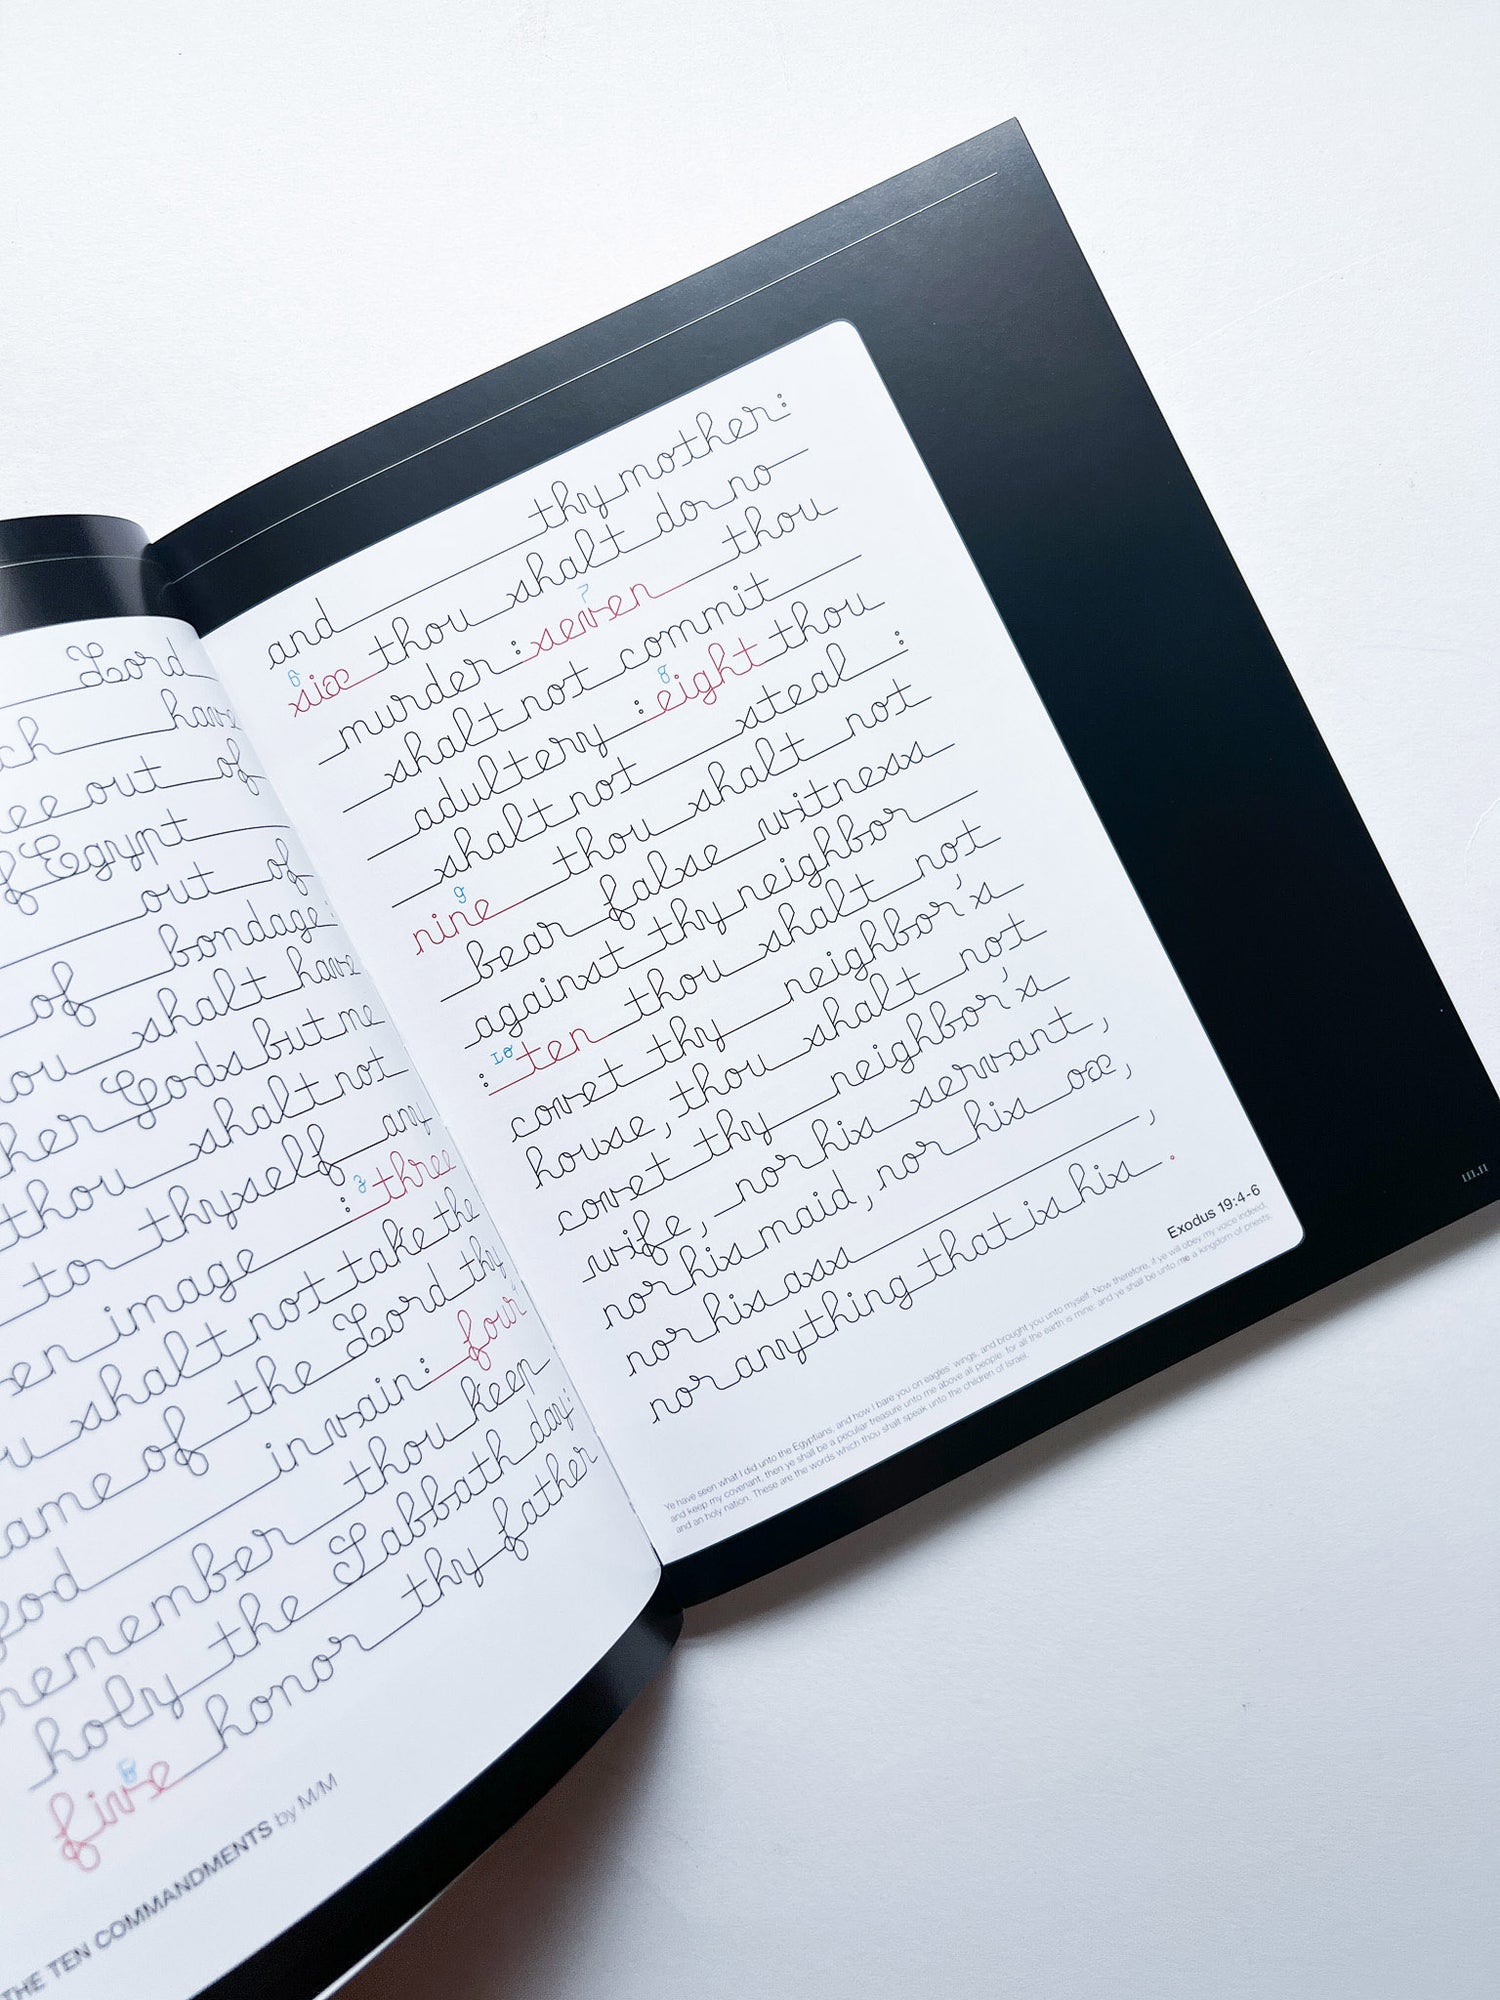 Lord
ch have
ee out of
of Egypt
out of
of bondage:
ou shalt have
her Gods but me
thou shalt not
to thyself any
en image : 3 three
u shalt not take the
ame of the Lord thy
God in vain : four
remember thou keep
holy the Sabbath day:
5 five honor thy father
THE TEN COMMANDMENTS by M/M
and thy mother:
6 six thou shalt do no
murder : 7 seven thou
shalt not commit
adultery : 8 eight thou
shalt not steal :
9 nine thou shalt not
bear false witness
against thy neighbor
: 10 ten thou shalt not
covet thy neighbor's
house, thou shalt not
covet thy neighbor's
wife, nor his servant,
nor his maid, nor his ox,
nor his ass ,
nor anything that is his.
Exodus 19:4-6
Ye have seen what I did unto the Egyptians, and how I bare you on eagles' wings, and brought you unto myself. Now therefore, if ye will obey my voice indeed,
and keep my covenant, then ye shall be a peculiar treasure unto me above all people: for all the earth is mine: and ye shall be unto me a kingdom of priests,
and an holy nation. These are the words which thou shalt speak unto the children of Israel.
III.II